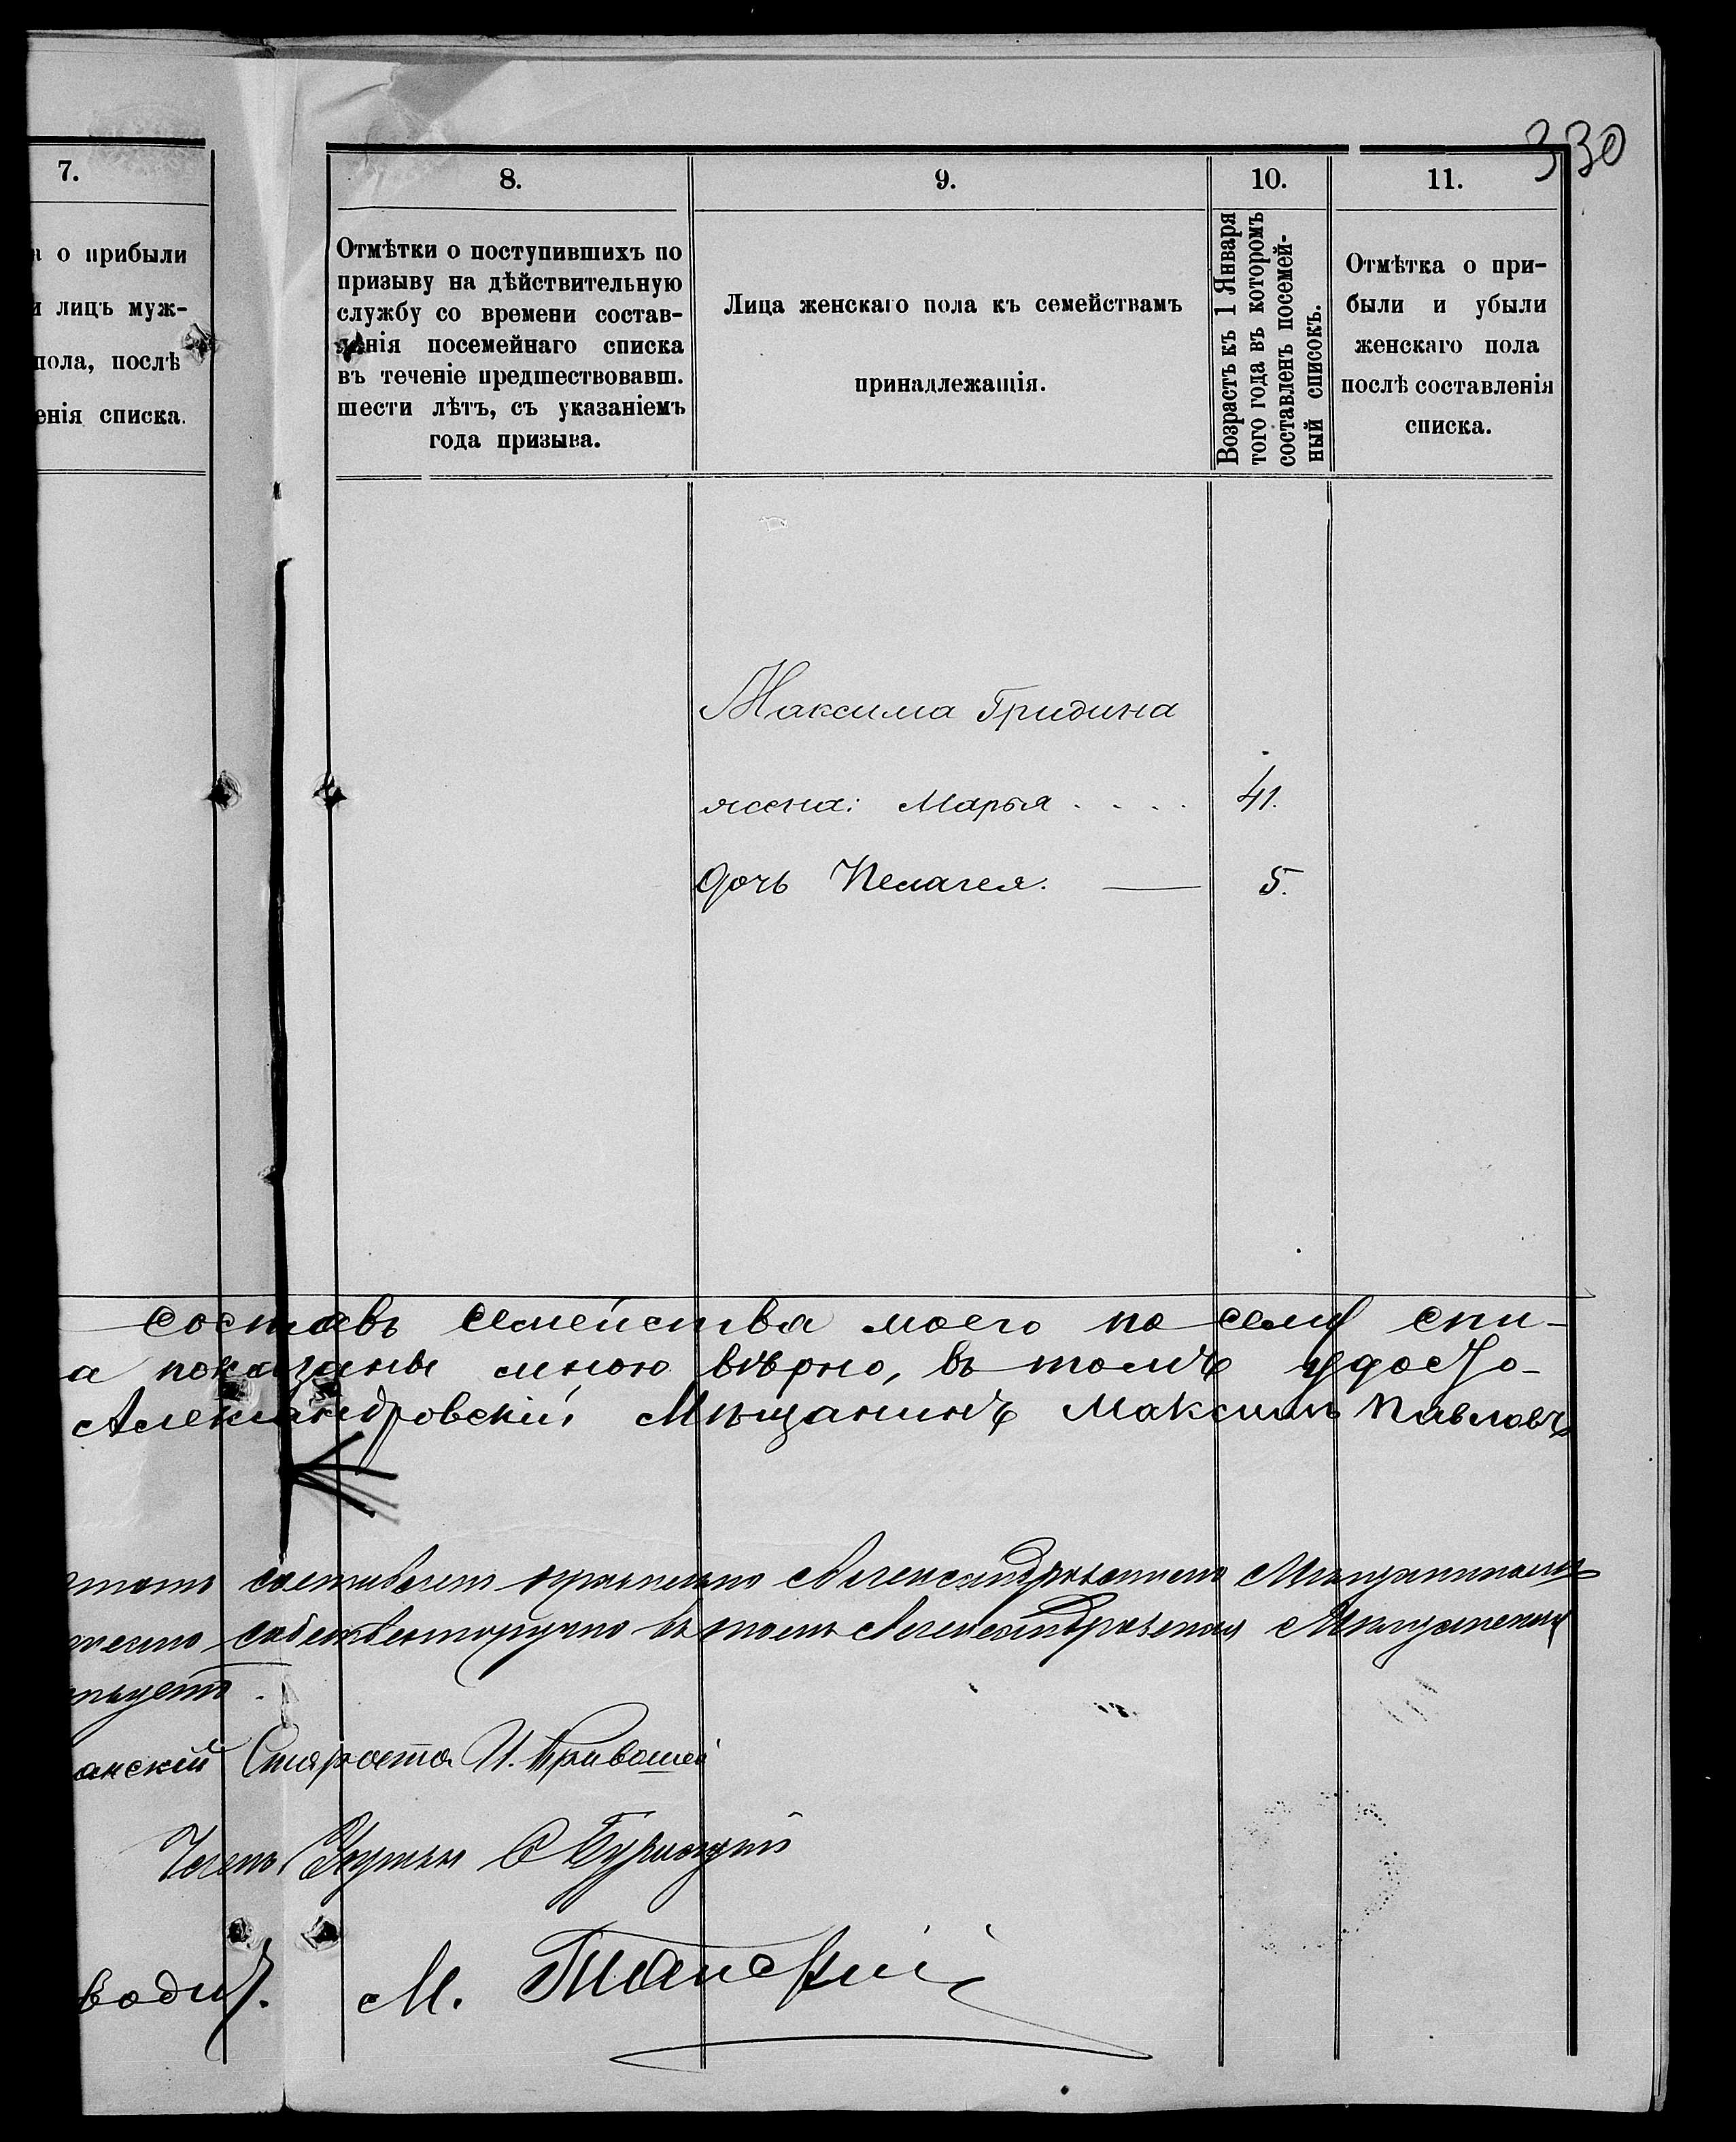 330
7.
о прибыли
лицъ муж-
пола, послѣ
енія списка.
8.
Отмѣтки о поступившихъ по
призыву на дѣйствительную
службу со времени состав-
ленія посемейнаго списка
въ теченіе предшествовавш.
шести лѣтъ, съ указаніемъ
года призыва.
9.
Лица женскаго пола къ семействамъ
принадлежащія.
10.
Возрастъ къ 1 Января
того года въ которомъ
составленъ посемей-
ный списокъ.
11.
Отмѣтка о при-
были и убыли
женскаго пола
послѣ составленія
списка.
Максима Гридина
жена: Марья . . . . 41.
дочь Пелагея. — 5.
составъ семейства моего по сему спи-
а показаны мною вѣрно, въ томъ удосто-
Александровскій Мѣщанинъ Максимъ Павловъ
составленъ правильно Александровскимъ Мѣщаниномъ
собственноручно въ томъ Александровская Мѣщанская
анскій Староста И.
Членъ Управы
водит. М.